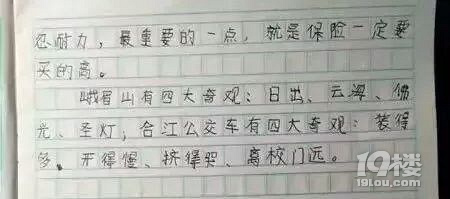 忍耐力，最重要的一点，就是保险一定要
买的高。
峨眉山有四大奇观：日出、云海、佛
光、圣灯，合江公交车有四大奇观：装得
多、开得慢、挤得哭、离校门远。
19楼
19lou.com